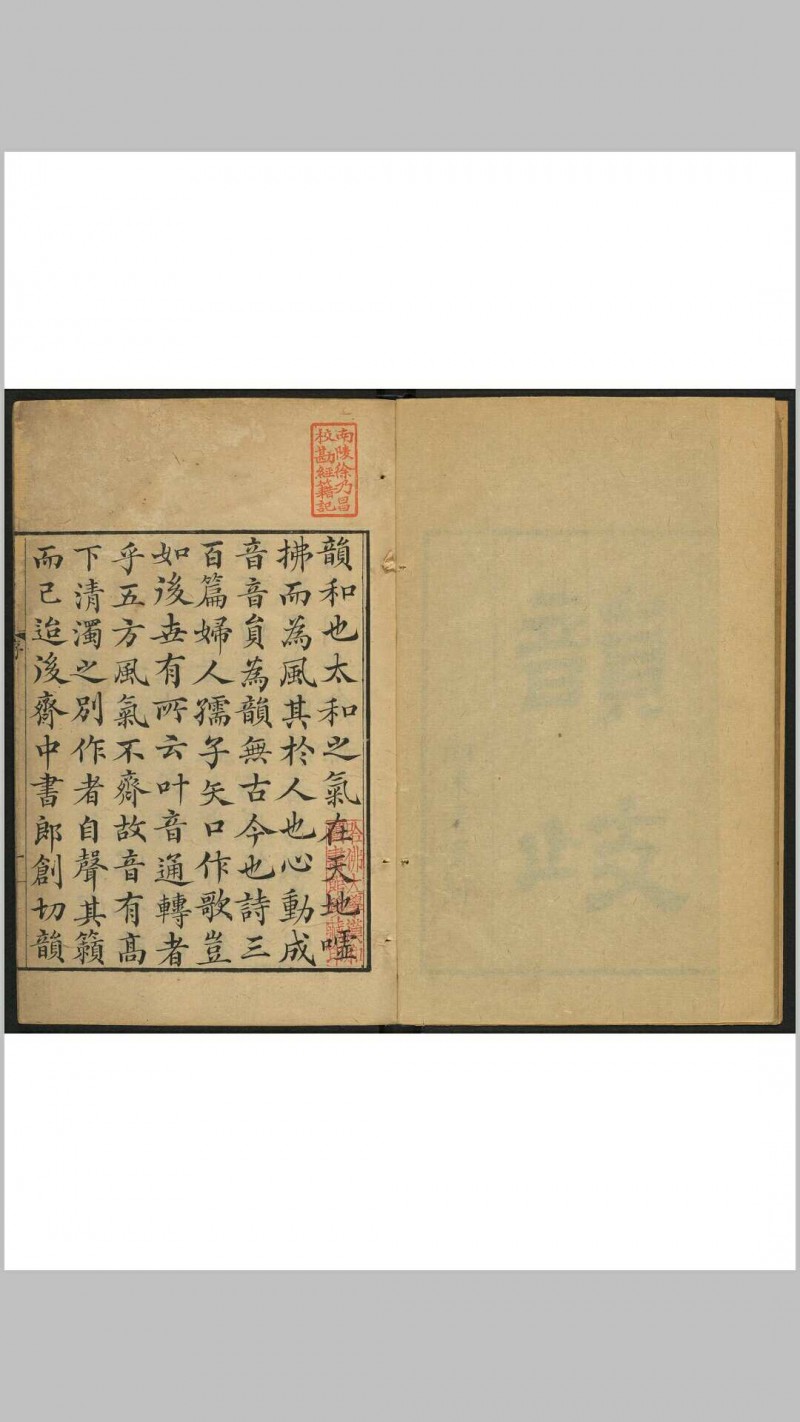 南陵徐乃昌
校勘經籍記
韻和也太和之氣在天地噓
拂而為風其於人也心動成
音音員為韻無古今也詩三
百篇婦人孺子矢口作歌豈
如後世有所云叶音通轉者
乎五方風氣不齊故音有高
下清濁之別作者自聲其籟
而已迨後齊中書郎創切韻
序
一